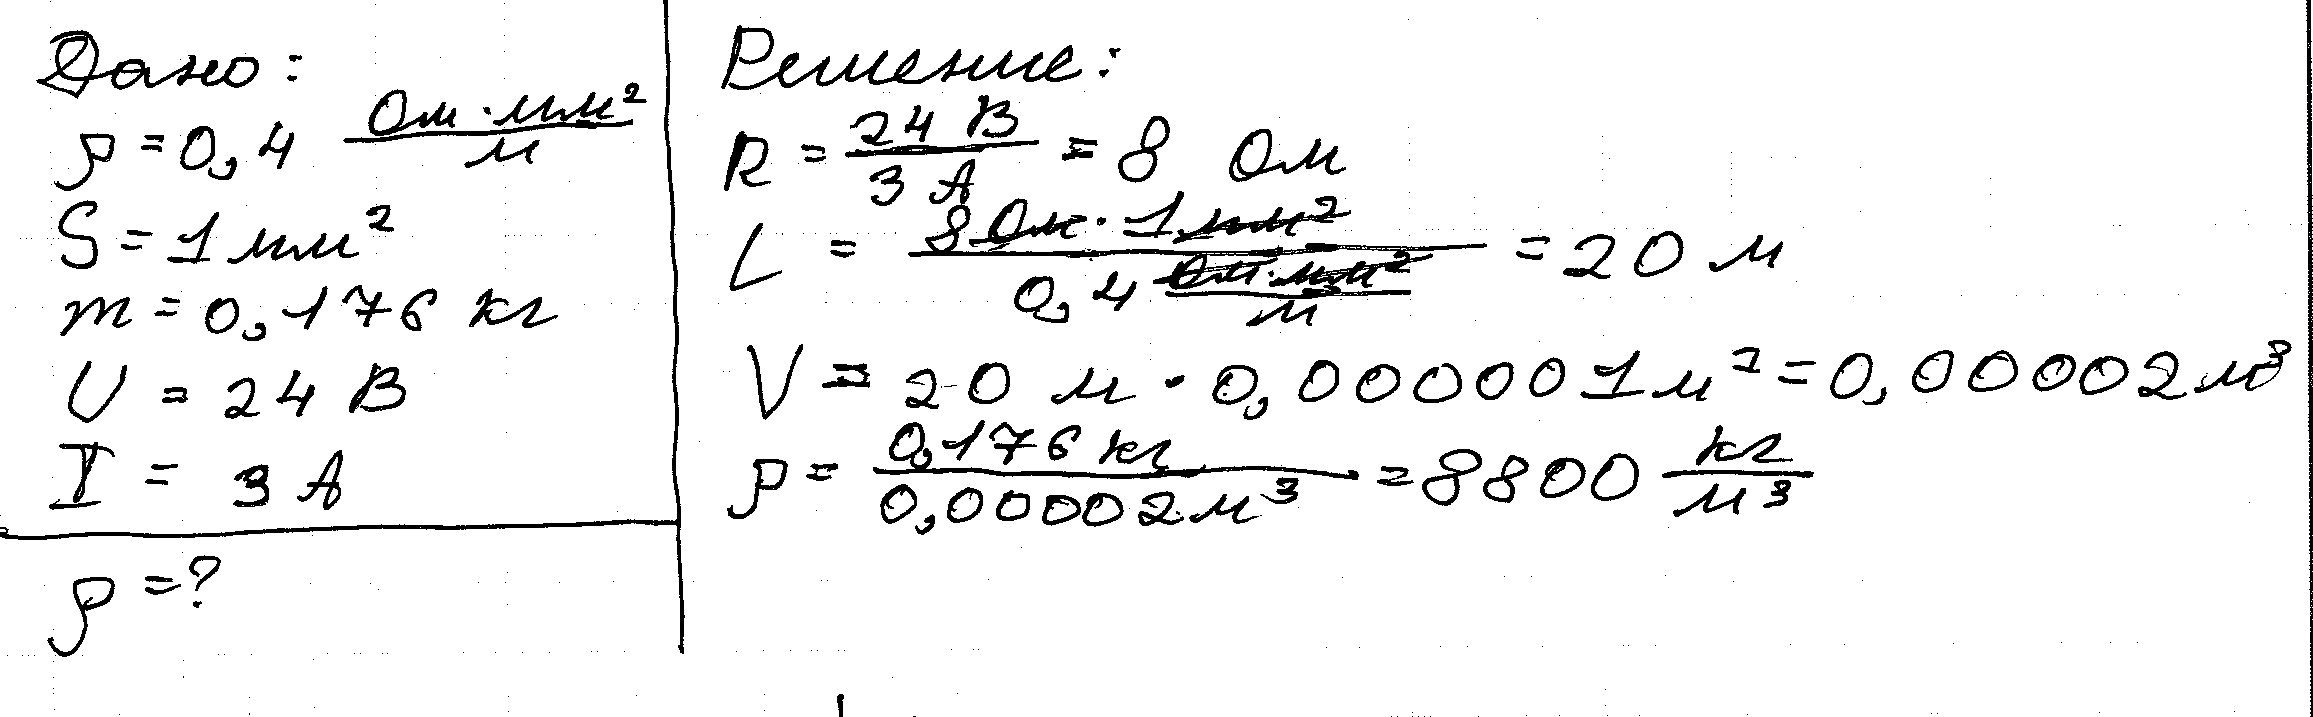 Дано:
ρ = 0,4 Ом·мм²/м
S = 1 мм²
m = 0,176 кг
U = 24 В
I = 3 А
ρ = ?
Решение:
R = 24 В / 3 А = 8 Ом
L = 8 Ом · 1 мм² / 0,4 Ом·мм²/м = 20 м
V = 20 м · 0,000001 м² = 0,00002 м³
ρ = 0,176 кг / 0,00002 м³ = 8800 кг/м³